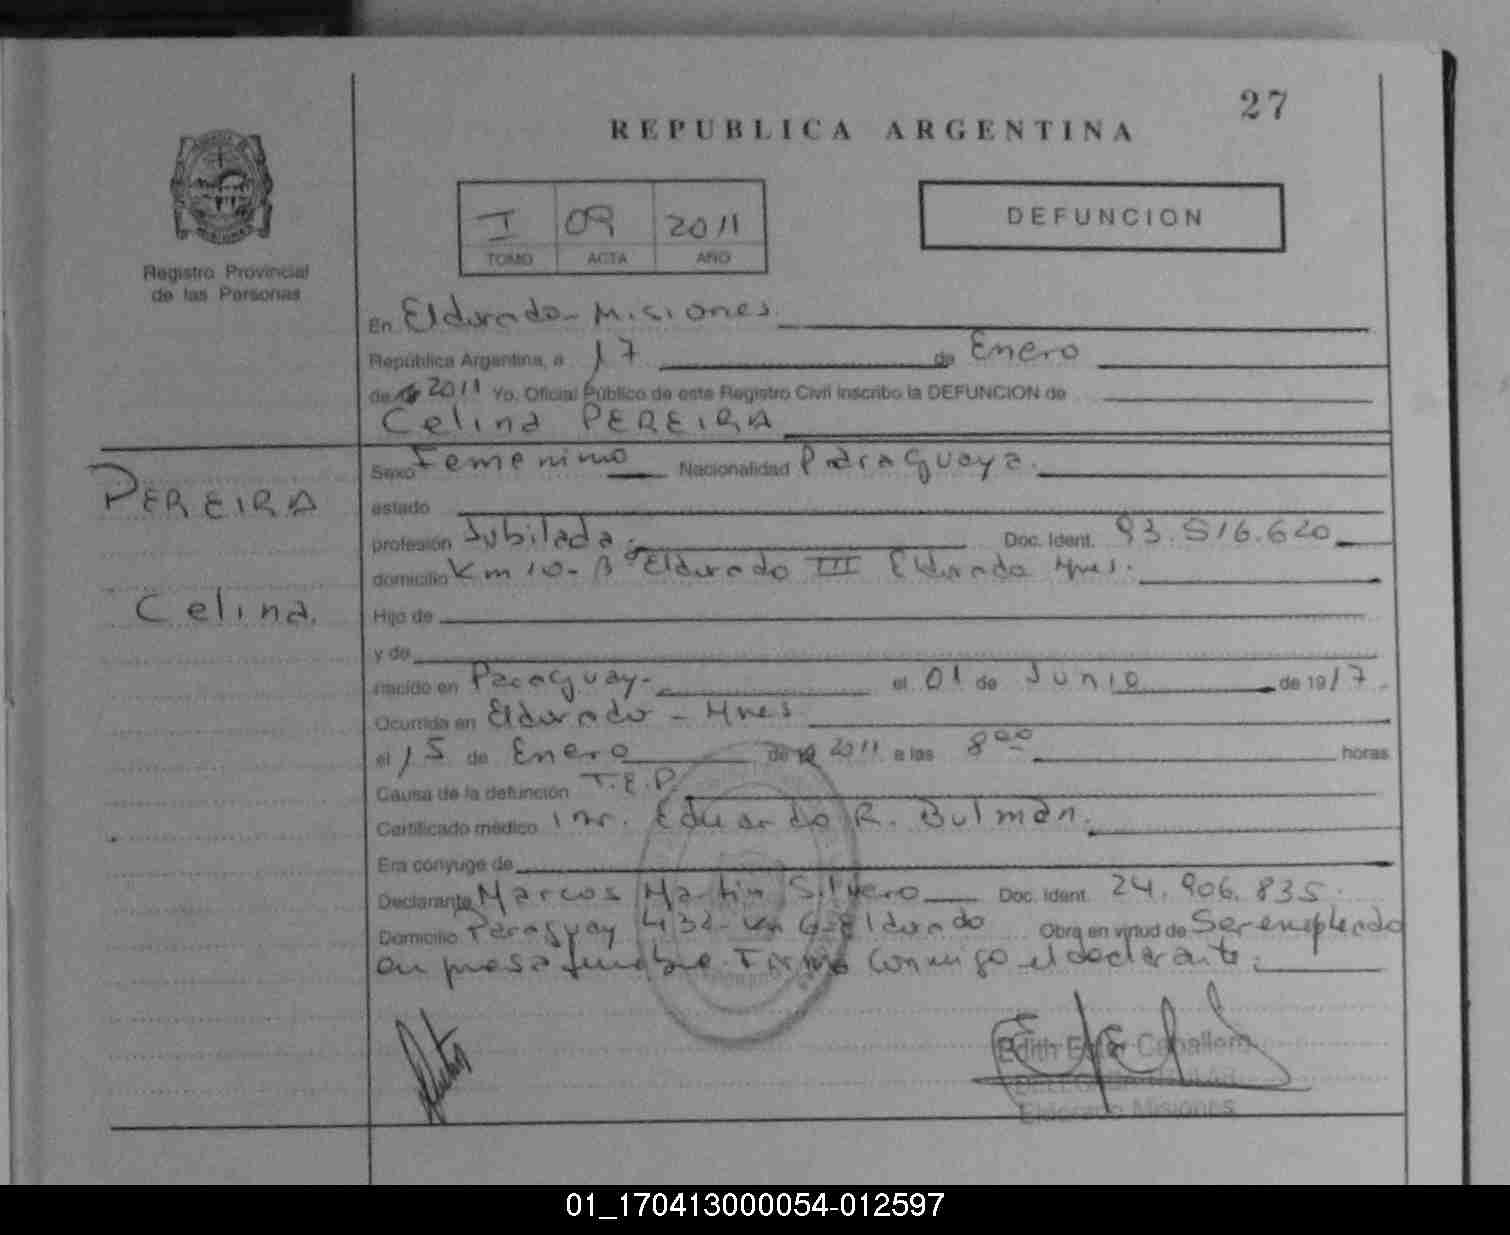 27
REPUBLICA ARGENTINA
I 09 2011
TOMO ACTA AÑO
DEFUNCION
Registro Provincial
de las Personas
En Eldorado - Misiones
República Argentina, a 17 de Enero
de 2011 Yo, Oficial Público de este Registro Civil inscribo la DEFUNCION de
Celina PEREIRA
PEREIRA
Celina.
Sexo Femenino Nacionalidad Paraguaya.
estado
profesión Jubilada. Doc. Ident. 93.516.620
domicilio Km 10 - Bº Eldorado III Eldorado Mnes.
Hijo de
y de
nacido en Paraguay - el 01 de Junio de 1917.
Ocurrida en Eldorado - Mnes
el 15 de Enero de 2011 a las 8 00 horas
Causa de la defunción T.E.P
Certificado médico Eduardo R. Bulman.
Era cónyuge de
Declarante Marcos Martin Silvero Doc. Ident. 24.906.835.
Domicilio Paraguay 432 - Km 6 - Eldorado Obra en virtud de Ser empleado
empresa funebre. Firma conmigo el declarante.
Edith Caballero
Eldorado Misiones
01_170413000054-012597